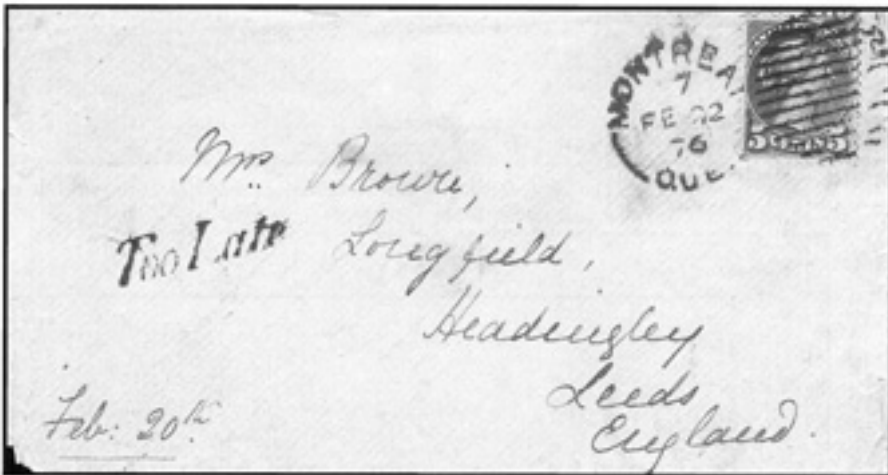 MONTREAL
7
FE 22
76
QUE
Mrs. Brown,
Too Late
Longfield,
Headingley
Leeds
England.
Feb: 20th